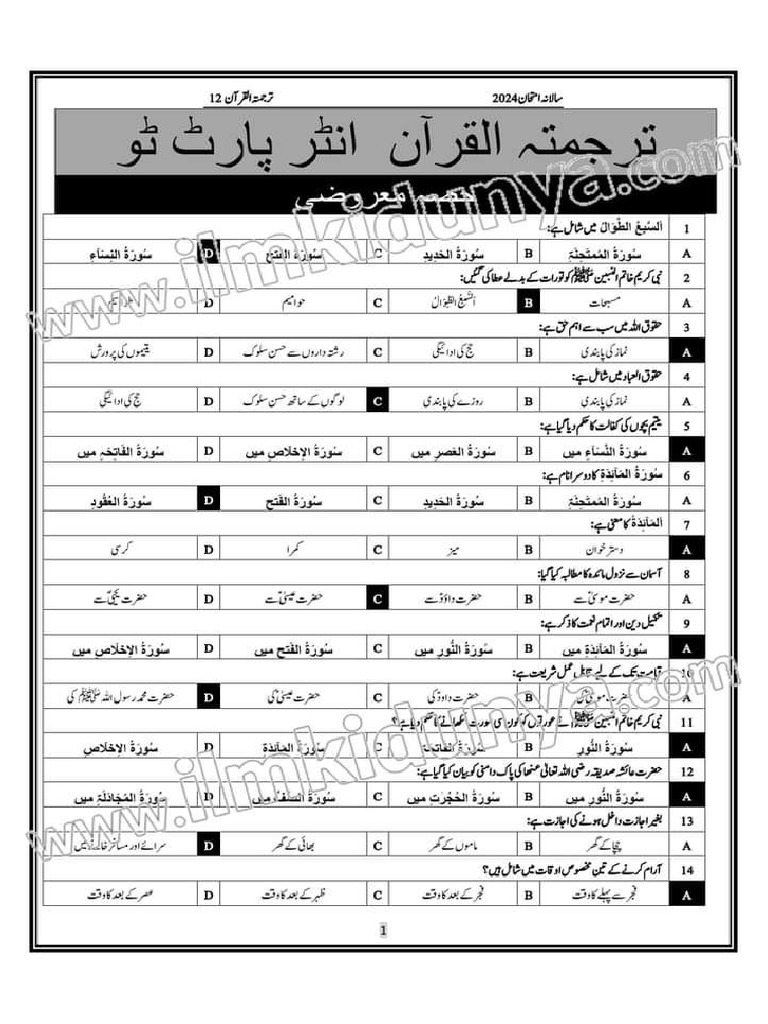 سالانہ امتحان 2024 ترجمتہ القرآن 12
ترجمتہ القرآن انٹر پارٹ ٹو
حصہ معروضی
1 اَلسَّبعُ الطِّوَالُ میں شامل ہے:
A سُورَۃُ المُمتَحِنَۃِ B سُورَۃُ الحَدِیدِ C سُورَۃُ الفَتحِ D سُورَۃُ النِّسَاءِ
2 نبی کریم خاتم النبیین ﷺ کو تورات کے بدلے عطا کی گئیں:
A مسبحات B اَلسَّبعُ الطِّوَالُ C حوامیم D
3 حقوق اللہ میں سب سے اہم حق ہے:
A نماز کی پابندی B حج کی ادائیگی C رشتہ داروں سے حسن سلوک D یتیموں کی پرورش
4 حقوق العباد میں شامل ہے:
A نماز کی پابندی B روزے کی پابندی C لوگوں کے ساتھ حسن سلوک D حج کی ادائیگی
5 یتیم بچوں کی کفالت کا حکم دیا گیا ہے:
A سُورَۃُ النِّسَاءِ میں B سُورَۃُ العَصرِ میں C سُورَۃُ الاِخلَاصِ میں D سُورَۃُ الفَاتِحَہِ میں
6 سُورَۃُ المَآئِدَۃِ کا دوسرا نام ہے:
A سُورَۃُ المُمتَحِنَۃِ B سُورَۃُ الحَدِیدِ C سُورَۃُ الفَتحِ D سُورَۃُ العُقُودِ
7 اَلمَآئِدَۃُ کا معنیٰ ہے:
A دستر خوان B میز C کمرا D کرسی
8 آسمان سے نزول مائدہ کا مطالبہ کیا گیا:
A حضرت موسیٰؑ سے B حضرت داؤدؑ سے C حضرت عیسیٰؑ سے D حضرت یحییٰؑ سے
9 تکمیل دین اور اتمام نعمت کا ذکر ہے:
A سُورَۃُ المَآئِدَۃِ میں B سُورَۃُ النُّورِ میں C سُورَۃُ الفَتحِ میں D سُورَۃُ الاِخلَاصِ میں
10 قیامت تک کے لیے قابل عمل شریعت ہے:
A حضرت موسیٰؑ کی B حضرت داؤدؑ کی C حضرت عیسیٰؑ کی D حضرت محمد رسول اللہ ﷺ کی
11 نبی کریم خاتم النبیین ﷺ نے عورتوں کو کون سی سورت سکھانے کا حکم دیا ہے؟
A سُورَۃُ النُّورِ B سُورَۃُ الفَاتِحَہِ C سُورَۃُ المَآئِدَۃِ D سُورَۃُ الاِخلَاصِ
12 حضرت عائشہ صدیقہ رضی اللہ تعالیٰ عنھا کی پاک دامنی کو بیان کیا گیا ہے:
A سُورَۃُ النُّورِ میں B سُورَۃُ الحُجُرٰتِ میں C سُورَۃُ الصَّفِّ میں D سُورَۃُ المُجَادَلَۃِ میں
13 بغیر اجازت داخل ہونے کی اجازت ہے:
A چچا کے گھر B ماموں کے گھر C بھائی کے گھر D سرائے اور مسافر خانے میں
14 آرام کرنے کے تین مخصوص اوقات میں شامل ہیں؟
A فجر سے پہلے کا وقت B فجر کے بعد کا وقت C ظہر کے بعد کا وقت D عصر کے بعد کا وقت
1
www.ilmkidunya.com
www.ilmkidunya.com